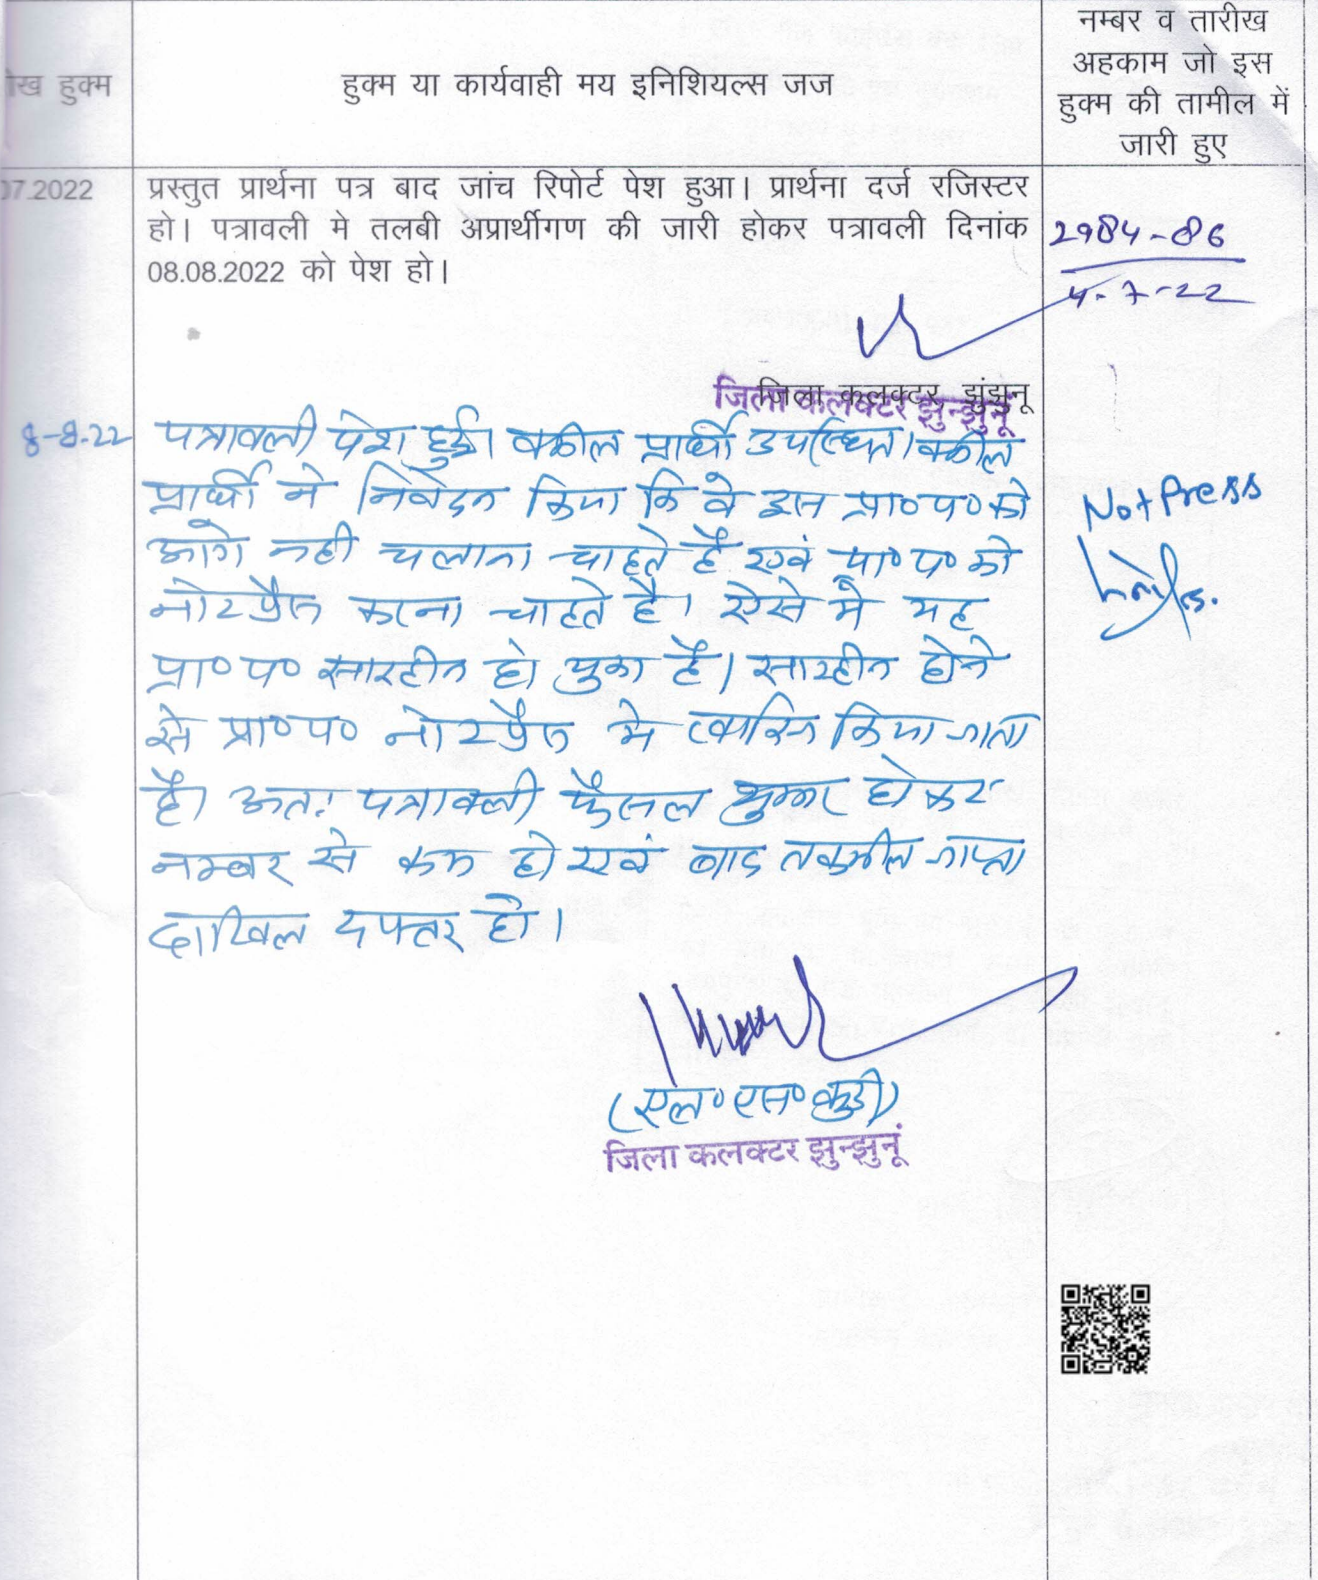 ख हुक्म
हुक्म या कार्यवाही मय इनिशियल्स जज
नम्बर व तारीख
अहकाम जो इस
हुक्म की तामील में
जारी हुए
07.2022
प्रस्तुत प्रार्थना पत्र बाद जांच रिपोर्ट पेश हुआ। प्रार्थना दर्ज रजिस्टर
हो। पत्रावली मे तलबी अप्रार्थीगण की जारी होकर पत्रावली दिनांक
08.08.2022 को पेश हो।
2984-86
4-7-22
जिला कलक्टर, झुंझुनू
जिला कलक्टर झुन्झुनूं
8-8-22
पत्रावली पेश हुई। वकील प्रार्थी उपस्थित। वकील
प्रार्थी ने निवेदन किया कि वे इस प्रा०प० को
आगे नही चलाना चाहते है एवं प्रा०प० को
नोटप्रैस करना चाहते है। ऐसे मे यह
प्रा०प० सारहीन हो चुका है। सारहीन होने
से प्रा०प० नोटप्रैस मे खारिज किया जाता
है। अतः पत्रावली फैसल शुमार होकर
नम्बर से कम हो एवं बाद तकमील जाप्ता
दाखिल दफ्तर हो।
Not Press
(एल०एस०कुडी)
जिला कलक्टर झुन्झुनूं